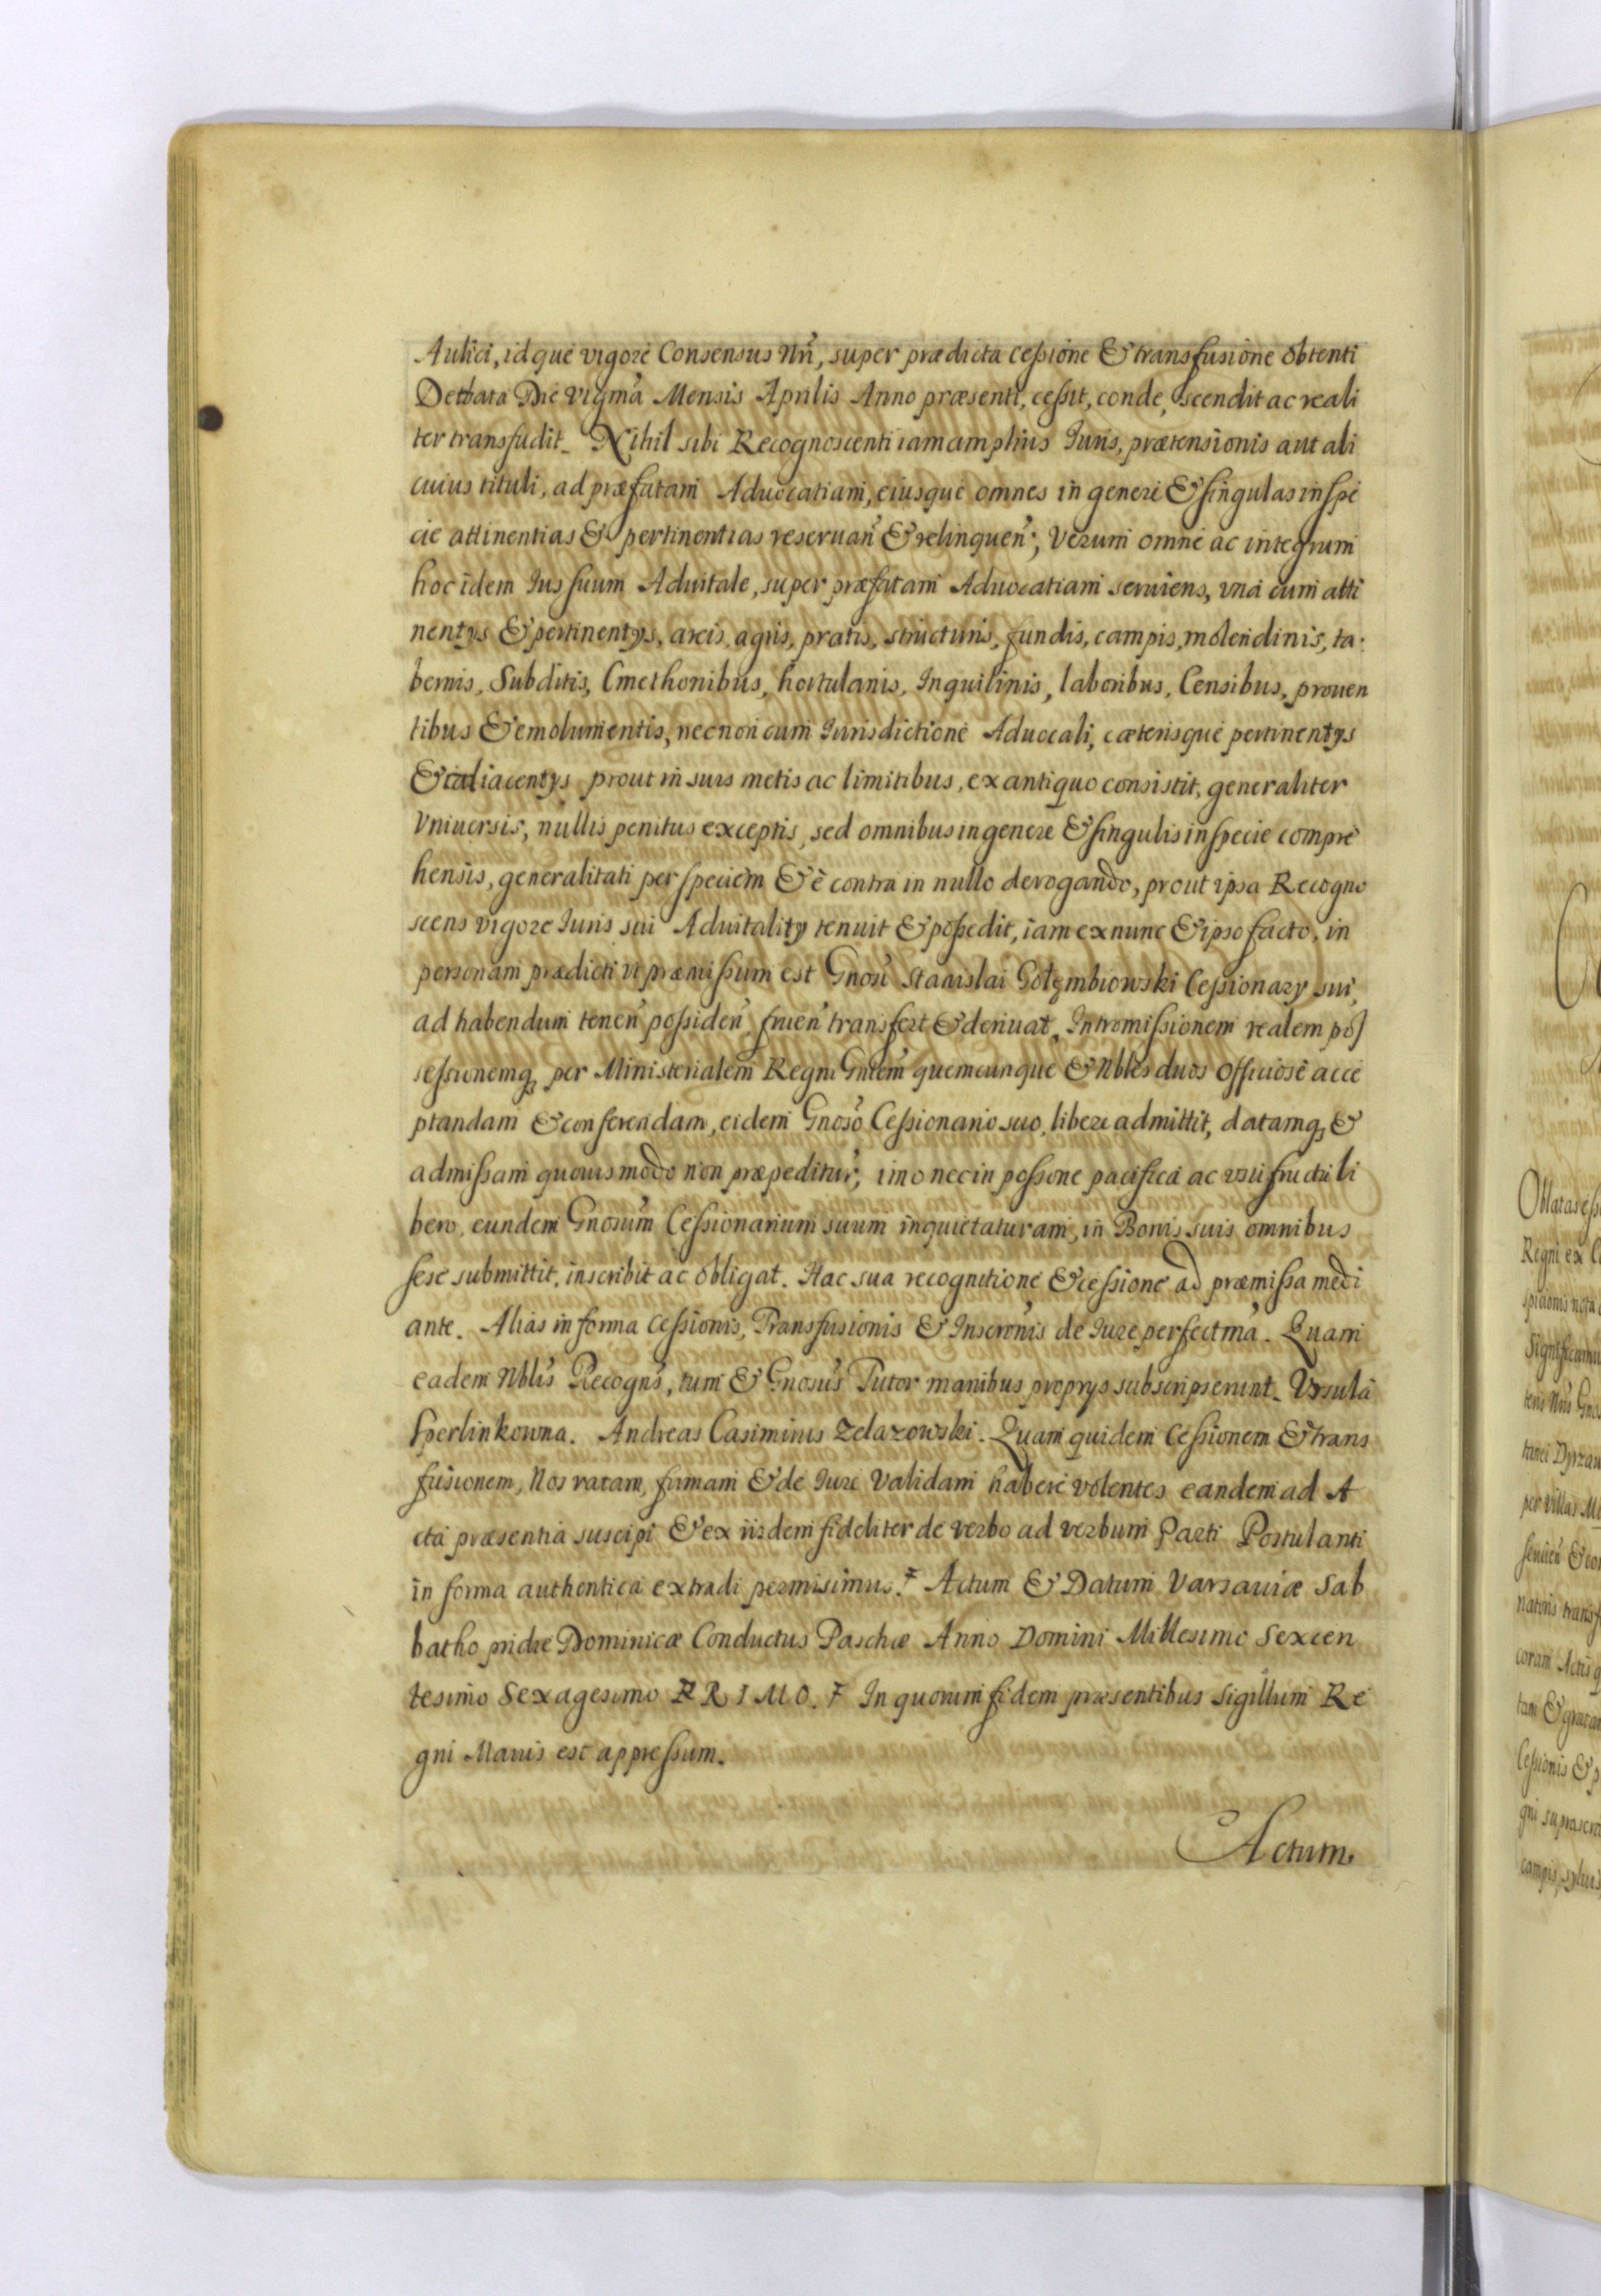 Aulici, idque vigore Consensus Nrī, super prædicta cessione & transfusione obtenti
De data Die vigmā Mensis Aprilis Anno præsenti, cessit, conde, scendit ac reali
ter transfudit. Nihil sibi Recognoscenti iam amplius Iuris, prætensionis aut ali
cuius tituli, ad præfatam Aduocatiam, eiusque omnes in genere & singulas in spe
cie attinentias & pertinentias reseruan̄ & relinquen̄; Verum omne ac integrum
hoc idem Ius suum Aduitale, super præfatam Aduocatiam seruiens, vna cum atti
nentys & pertinentys, areis, agris, pratis, structuris, fundis, campis, molendinis, ta:
bernis, Subditis, Cmethonibus, hortulanis, Inquilinis, laboribus, Censibus, prouen
tibus & emolumentis, necnon cum Iurisdictione Aduocali, cæterisque pertinentys
& adiacentys prout in suis metis ac limitibus, ex antiquo consistit, generaliter
Vniuersis, nullis penitus exceptis, sed omnibus in genere & singulis in specie compre
hensis, generalitati per speciem & è contra in nullo derogando, prout ipsa Recogno
scens vigore Iuris sui Aduitality tenuit & possedit, iam ex nunc & ipso facto, in
personam prædicti vt præmissum est Gnosī Stanislai Gołęmbiowski Cessionary sui,
ad habendum tenen̄ possiden̄ fruen̄ transfert & deriuat, Intromissionem realem pos
sessionemq; per Ministerialem Regni Gnlem̄ quemcunque & Nbles duos Officiose acce
ptandam & conferendam, eidem Gnosō Cessionario suo, libere admittit, datamq; &
admissam quouis modo non præpeditur̄, imo nec in possone pacifica ac vsufructu li
bero, eundem Gnosum̄ Cessionarium suum inquietaturam, in Bonis suis omnibus
sese submittit, inscribit ac obligat. Hac sua recognitione & cessione ad præmissa medi
ante. Alias in forma Cessionis, Transfusionis & Inscronis de Iure perfectmā. Quam
eadem Nblis Recogns̄, tum & Gnosus̄ Tutor manibus proprys subscripserunt. Vrsula
Sperlinkowna. Andreas Casimirus Zelazowski. Quam quidem Cessionem & trans
fusionem, Nos ratam, firmam & de Iure Validam habere volentes eandem ad A
cta præsentia suscipi & ex iisdem fideliter de verbo ad verbum Parti Postulanti
in forma authentica extradi permisimus. Actum & Datum Varsauiæ Sab
batho pridie Dominicæ Conductus Paschæ Anno Domini Millesimo Sexcen
tesimo Sexagesimo PRIMO. In quorum fidem præsentibus Sigillum Re
gni Maius est appressum.
Actum